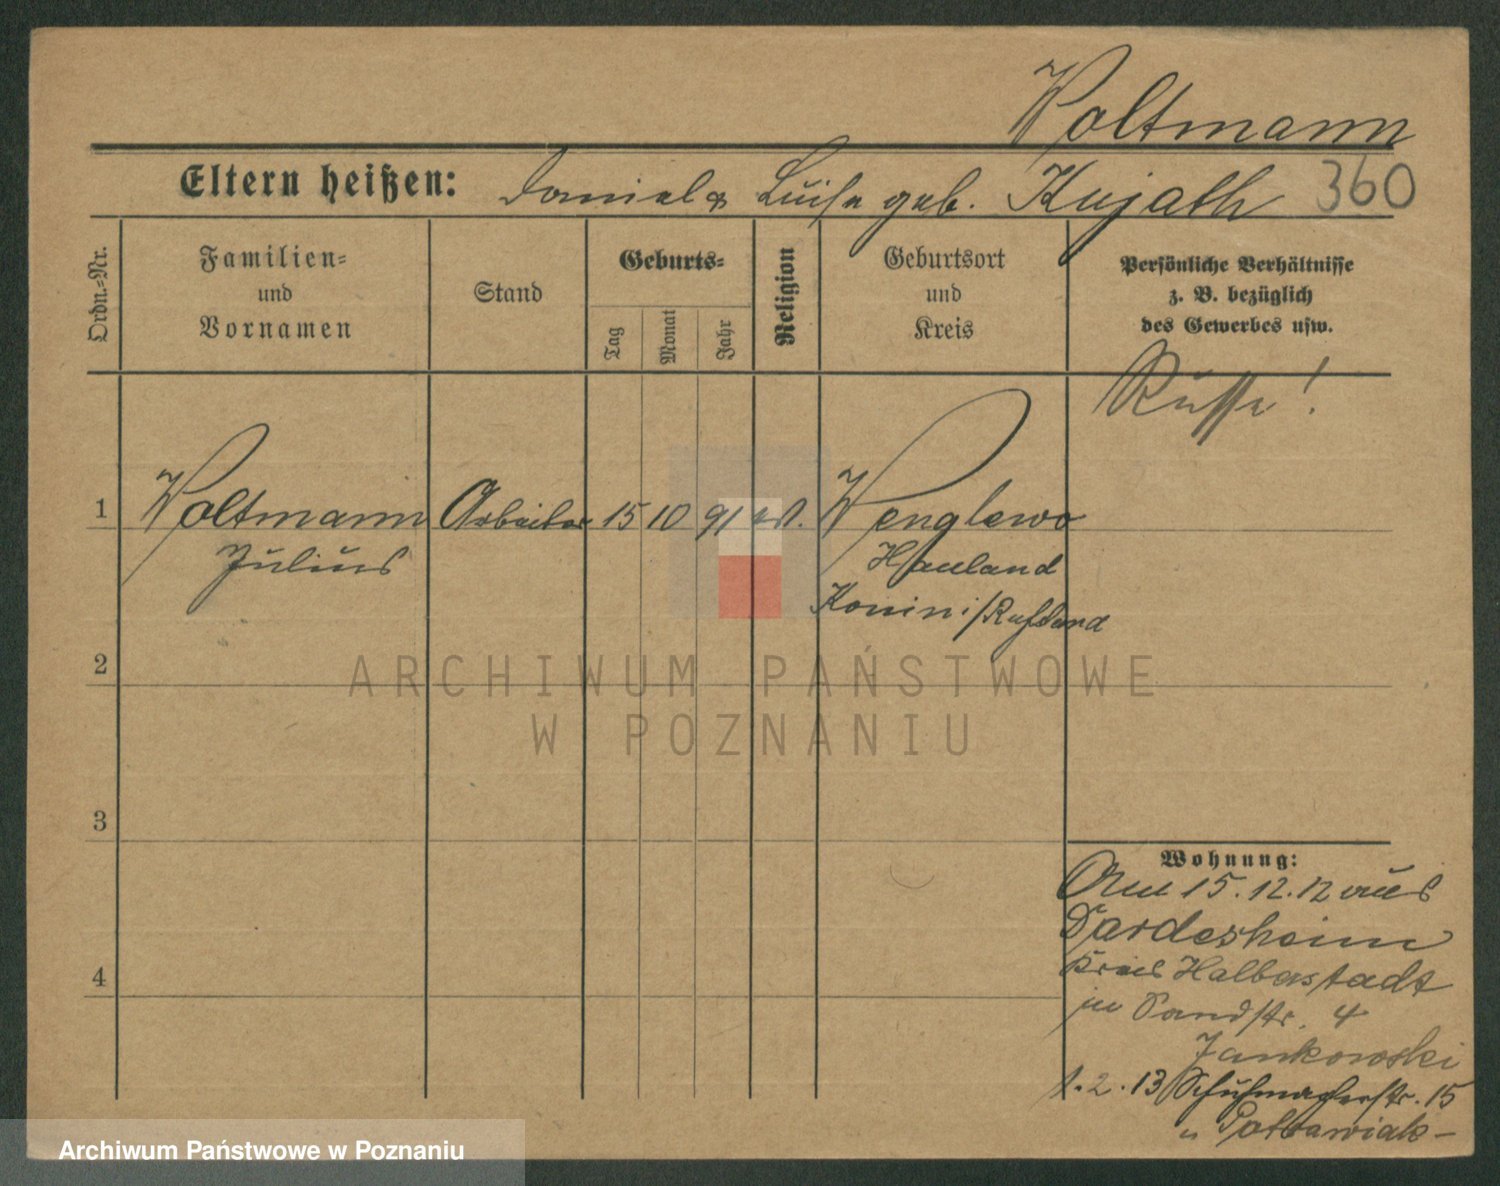 Woltmann
Eltern heißen: Daniel & Luise geb. Kujath 360
Ordn.-Nr.
Familien-
und
Vornamen
Stand
Geburts-
Tag
Monat
Jahr
Religion
Geburtsort
und
Kreis
Persönliche Verhältnisse
z. B. bezüglich
des Gewerbes usw.
Russe!
1 Woltmann Arbeiter 15 10 91 ev. Wenglewo
Julius Hauland
Konin i/Rußland
2
3
4
Wohnung:
Am 15.12.12 aus
Dardesheim
Kreis Halberstadt
in Sandstr. 4
Jankowski
1.2.13 Schuhmacherstr. 15
" Potrawiak
ARCHIWUM PAŃSTWOWE
W POZNANIU
Archiwum Państwowe w Poznaniu